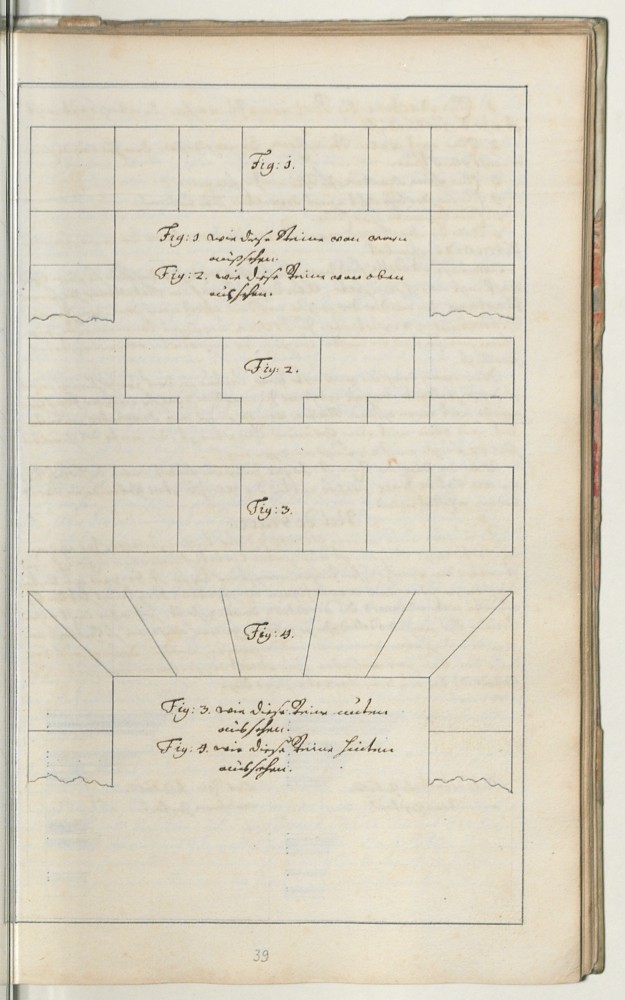 Fig: 1.
Fig: 1 wie diese Steine von vorn
aussehen.
Fig: 2. wie diese Steine von oben
aussehen.
Fig: 2.
Fig: 3.
Fig: 4.
Fig: 3. wie diese Steine unten
aussehen.
Fig: 4. wie diese Steine hinten
aussehen.
39